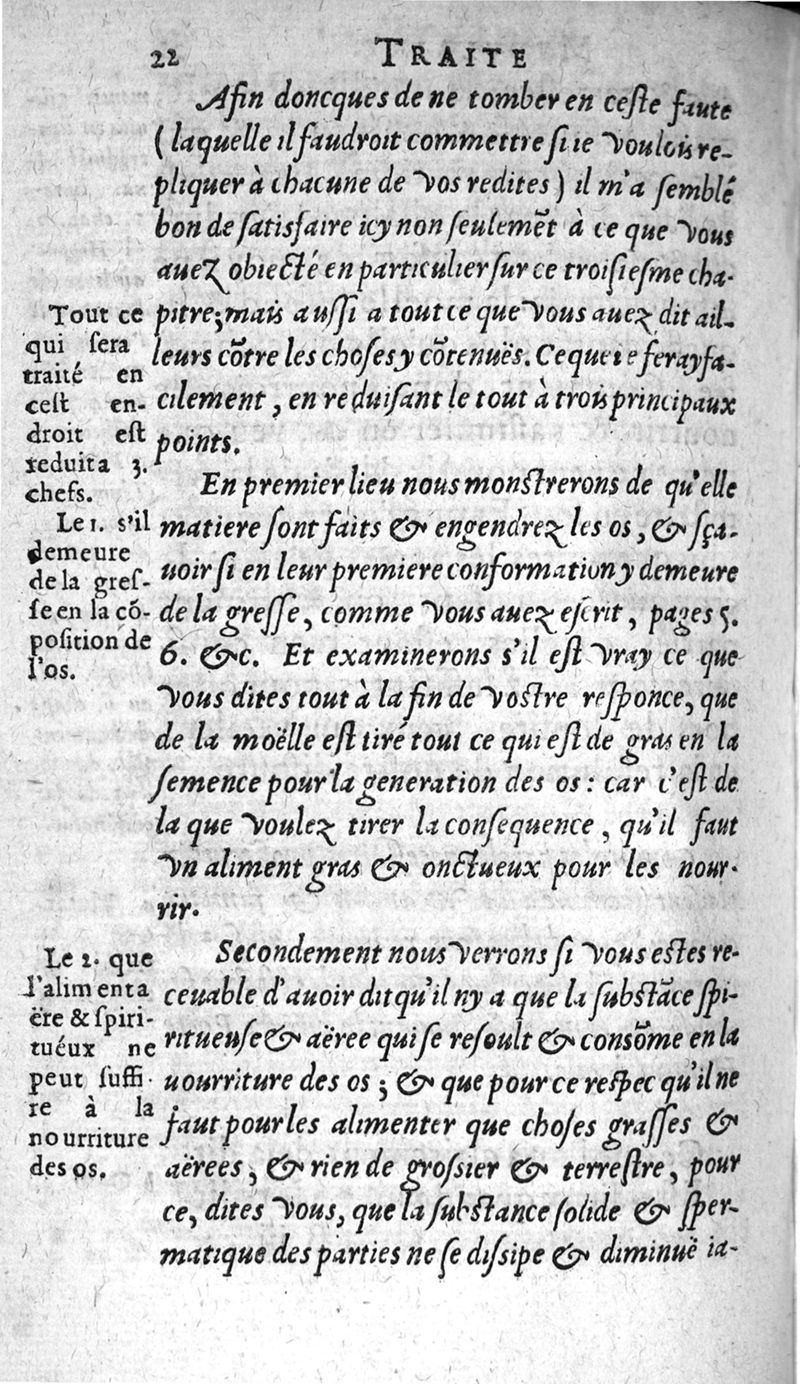 22 TRAITE
Afin doncques de ne tomber en ceste faute
(laquelle il faudroit commettre si ie voulois re-
pliquer à chacune de vos redites) il m'a semblé
bon de satisfaire icy non seulemēt à ce que vous
auez obiecté en particulier sur ce troisiesme cha-
pitre; mais aussi a tout ce que vous auez dit ail-
leurs cōtre les choses y cōtenuës. Ce que ie feray fa-
cilement, en reduisant le tout à trois principaux
points.
Tout ce
qui sera
traité en
cest en-
droit est
reduit a 3.
chefs.
En premier lieu nous monstrerons de qu'elle
matiere sont faits & engendrez les os, & sça-
uoir si en leur premiere conformation y demeure
de la gresse, comme vous auez escrit, pages 5.
6. &c. Et examinerons s'il est vray ce que
vous dites tout à la fin de vostre responce, que
de la moëlle est tiré tout ce qui est de gras en la
semence pour la generation des os: car c'est de
la que voulez tirer la consequence, qu'il faut
vn aliment gras & onctueux pour les nour-
rir.
Le 1. s'il
demeure
de la gres-
se en la cō-
position de
l'os.
Secondement nous verrons si vous estes re-
ceuable d'auoir dit qu'il ny a que la substāce spi-
ritueuse & aëree qui se resoult & consōme en la
nourriture des os; & que pour ce respec qu'il ne
faut pour les alimenter que choses grasses &
aërees, & rien de grossier & terrestre, pour
ce, dites vous, que la substance solide & sper-
matique des parties ne se dissipe & diminuë ia-
Le 2. que
l'aliment a
ëre & spiri-
tuéux ne
peut suffi-
re à la
nourriture
des os.